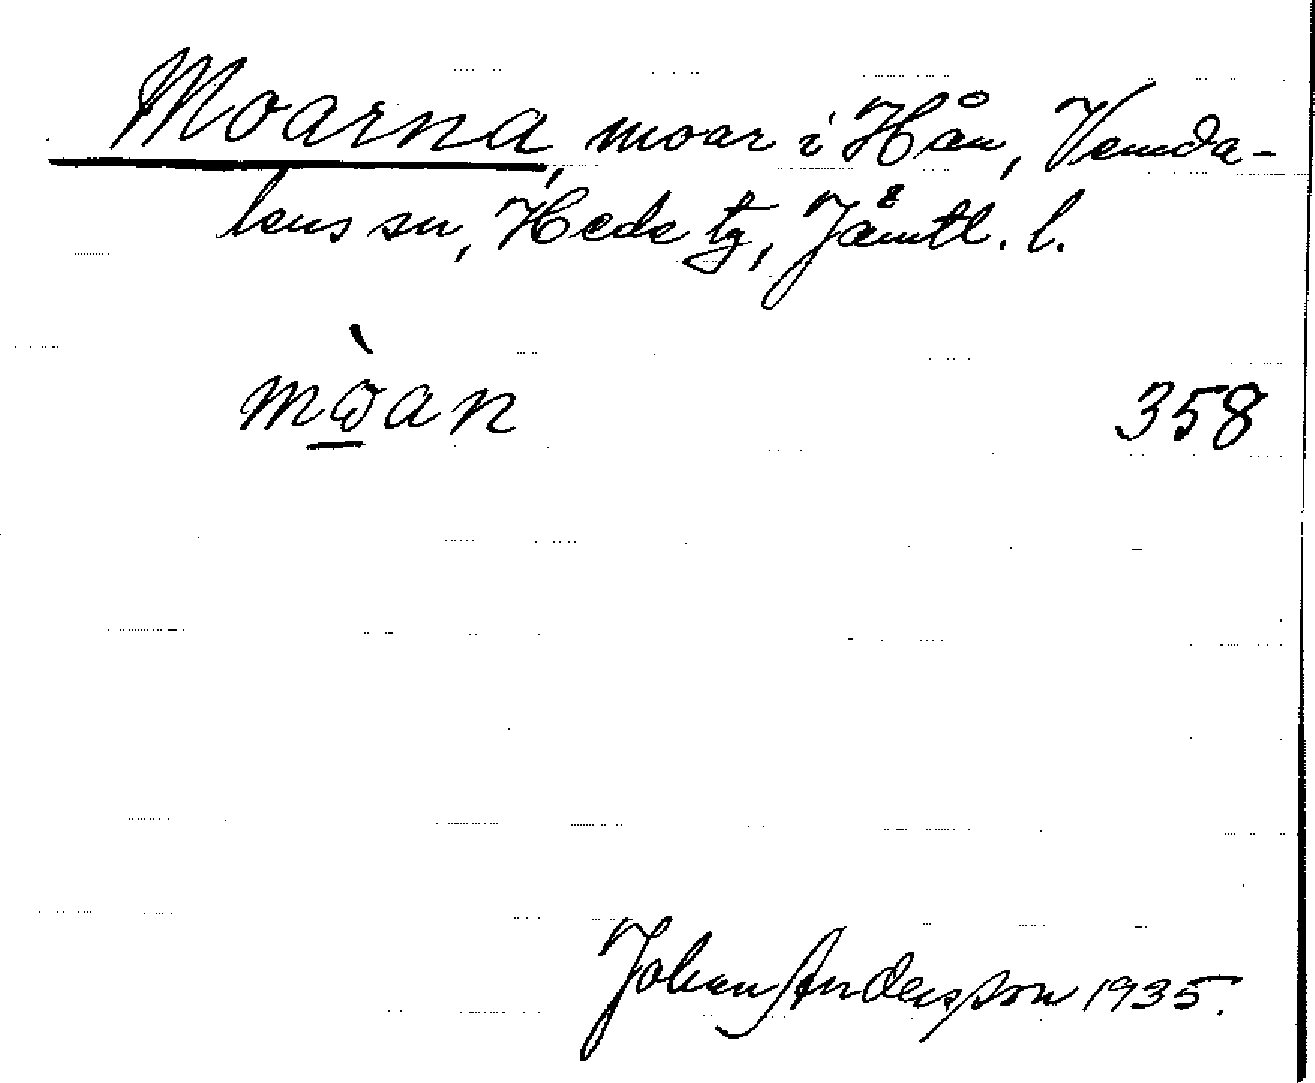 Moarna, moar i Hån, Vemda-
lens sn, Hede tg, Jämtl. l.
mòan 358
Johan Andersson 1935.